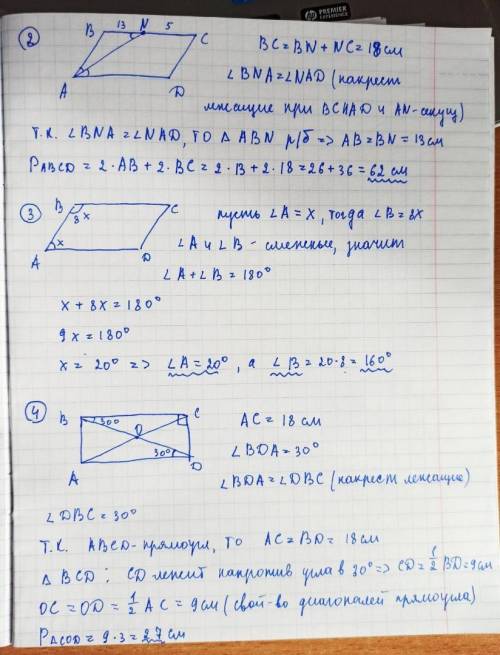 PREMIER
EXPERIENCE
2
B 13 N 5 C
A D
BC = BN + NC = 18 см
∠BNA = ∠NAD (накрест
лежащие при BC‖AD и AN-секущ)
Т.к. ∠BNA = ∠NAD, то Δ ABN р/б => AB = BN = 13 см
PABCD = 2·AB + 2·BC = 2·13 + 2·18 = 26 + 36 = 62 см
3
B 8x C
A x D
пусть ∠A = x, тогда ∠B = 8x
∠A и ∠B - смежные, значит
∠A + ∠B = 180°
x + 8x = 180°
9x = 180°
x = 20° => ∠A = 20°, а ∠B = 20·8 = 160°
4
B 30° C
O
A 30° D
AC = 18 см
∠BDA = 30°
∠BDA = ∠DBC (накрест лежащие)
∠DBC = 30°
Т.к. ABCD - прямоугл, то AC = BD = 18 см
Δ BCD: CD лежит напротив угла в 30° => CD = 1/2 BD = 9 см
OC = OD = 1/2 AC = 9 см (свой-во диагоналей прямоугла)
PΔCOD = 9·3 = 27 см